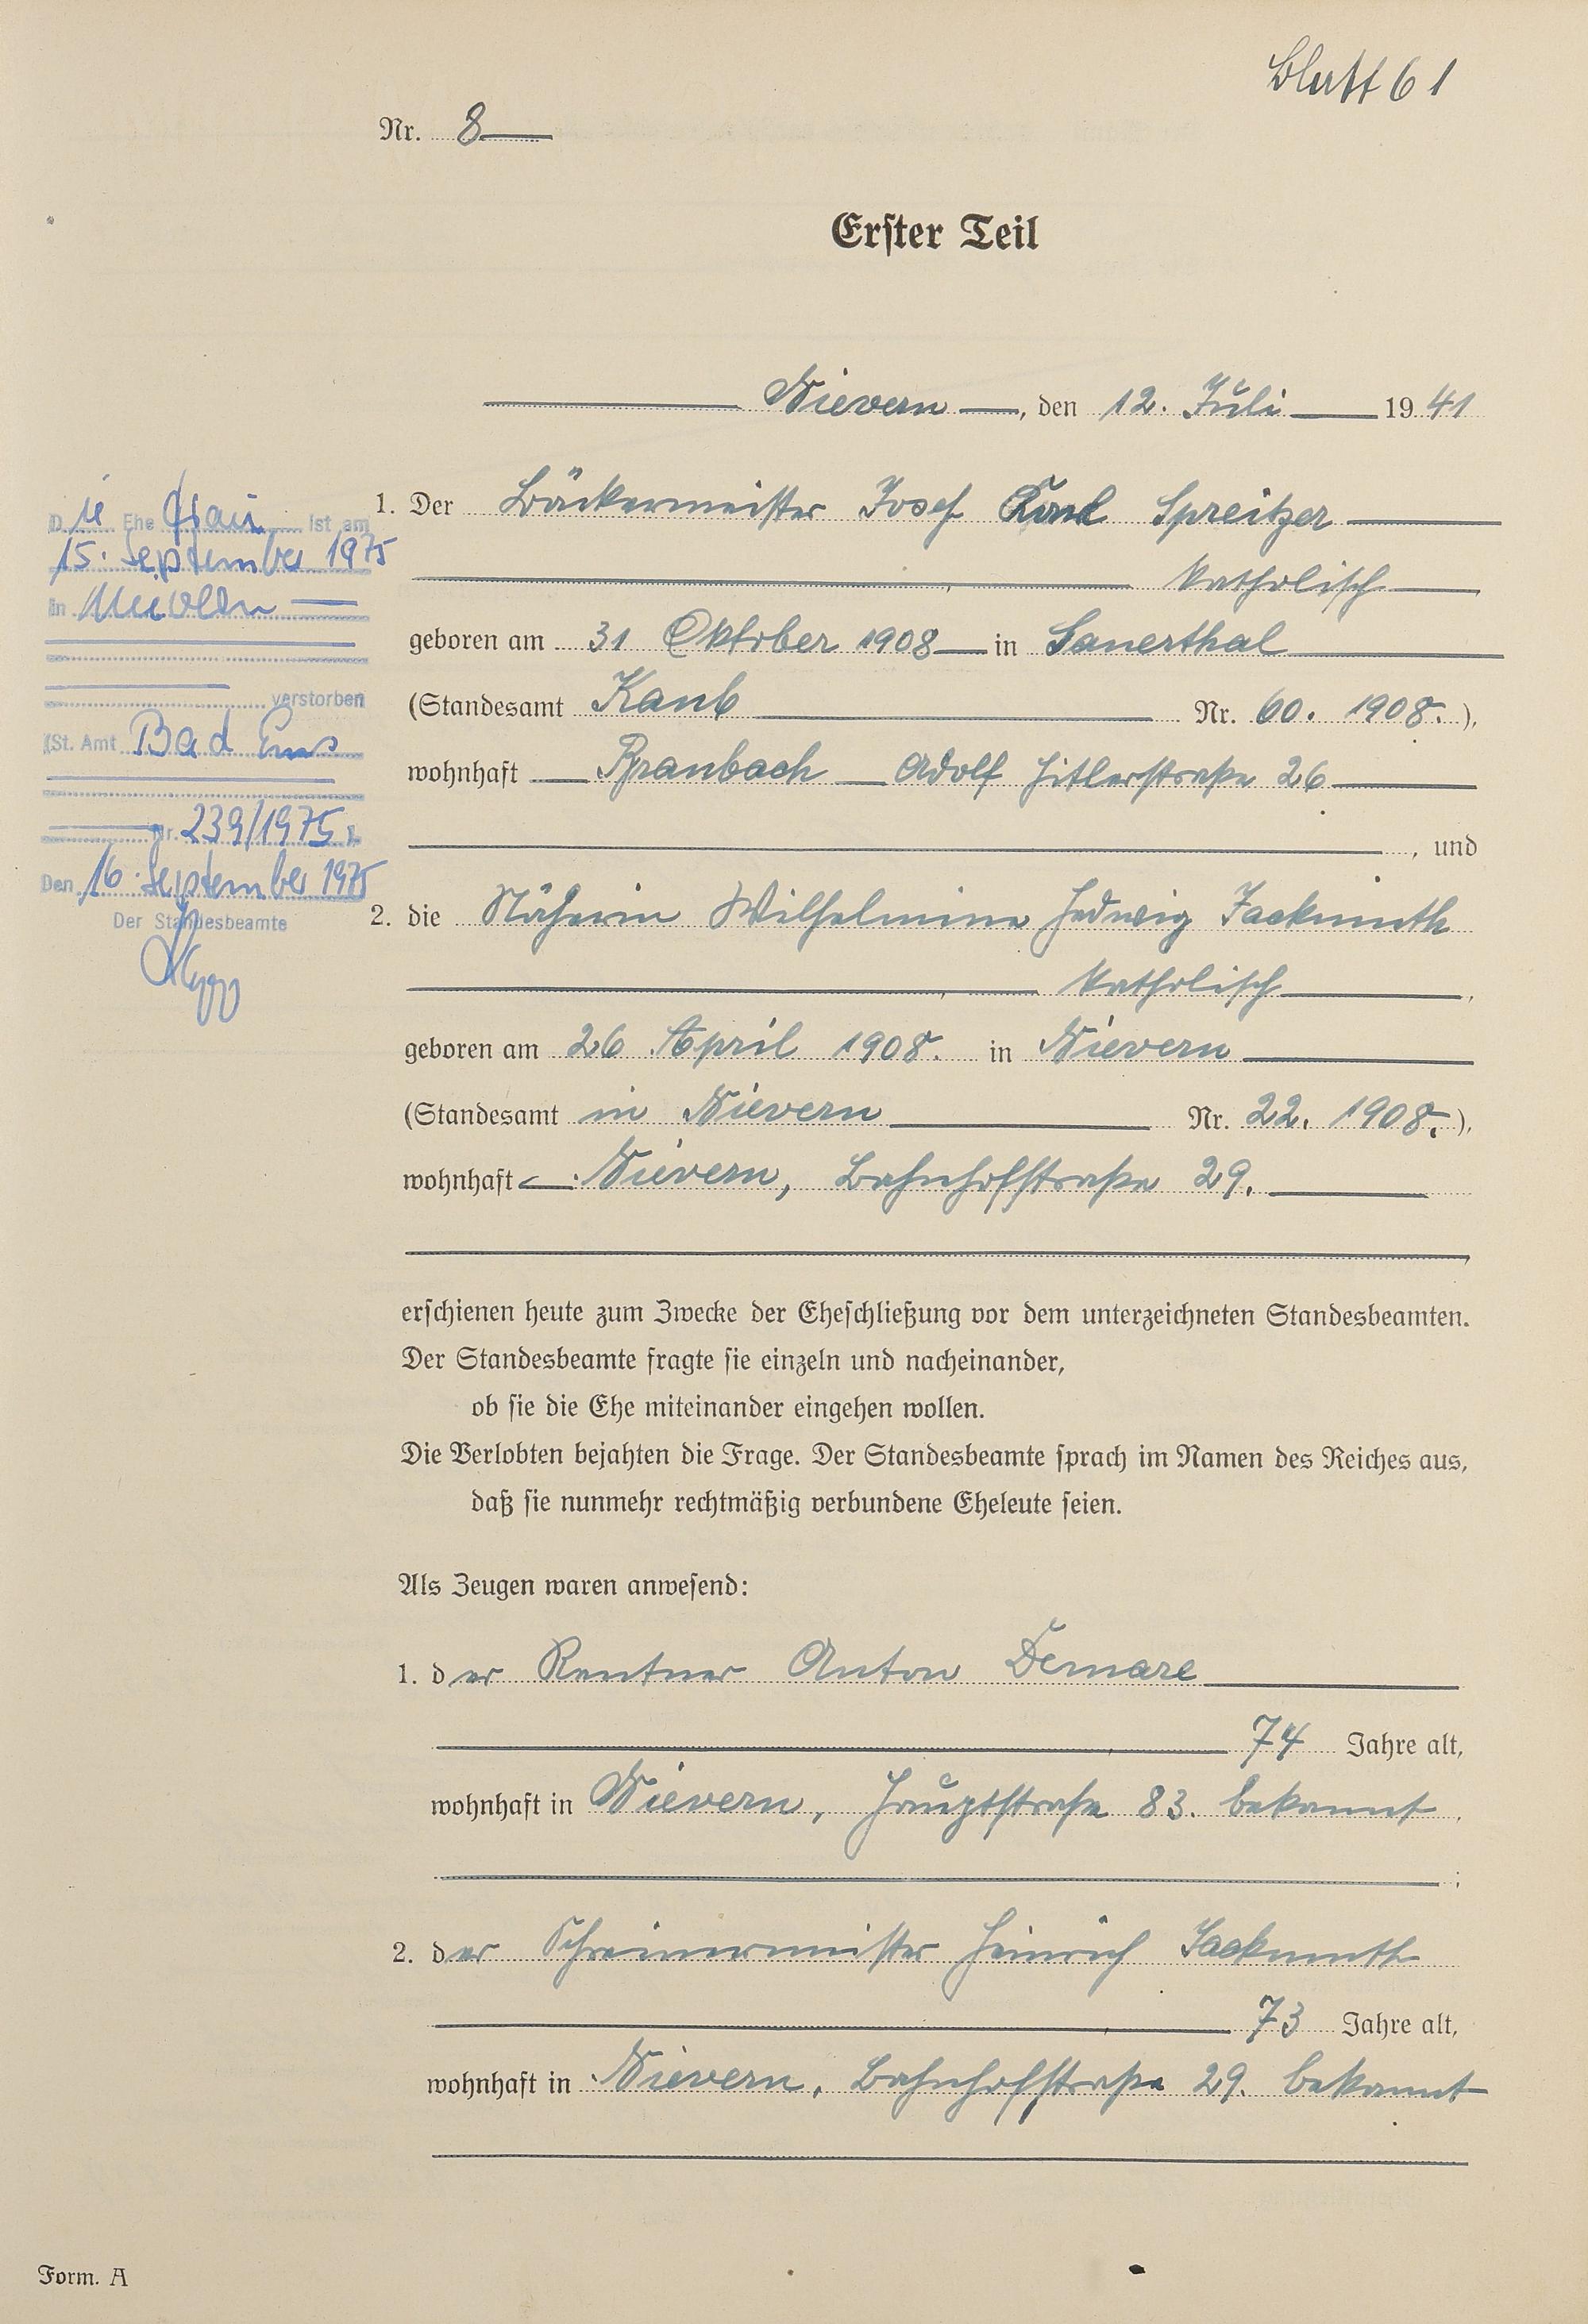 Blatt 61
Nr. 8
Erster Teil
Nievern, den 12. Juli 1941
1. Der Bäckermeister Josef Karl Spreitzer
katholisch
geboren am 31 Oktober 1908 in Sauerthal
(Standesamt Kaub Nr. 60. 1908.),
wohnhaft Ransbach Adolf Hitlerstraße 26
, und
2. die Näherin Wilhelmine Hedwig Jackmuth
katholisch,
geboren am 26 April 1908. in Nievern
(Standesamt in Nievern Nr. 22. 1908.),
wohnhaft Nievern, Bahnhofstraße 29.
erschienen heute zum Zwecke der Eheschließung vor dem unterzeichneten Standesbeamten.
Der Standesbeamte fragte sie einzeln und nacheinander,
ob sie die Ehe miteinander eingehen wollen.
Die Verlobten bejahten die Frage. Der Standesbeamte sprach im Namen des Reiches aus,
daß sie nunmehr rechtmäßig verbundene Eheleute seien.
Als Zeugen waren anwesend:
1. der Rentner Anton Demare
74 Jahre alt,
wohnhaft in Nievern, Hauptstraße 83. bekannt,
;
2. der Schreinermeister Heinrich Jackmuth
73 Jahre alt,
wohnhaft in Nievern, Bahnhofstraße 29. bekannt
Die Ehefrau ist am
15. September 1975
in Nievern
verstorben
(St. Amt Bad Ems
Nr. 239/1975).
Den 16. September 1975
Der Standesbeamte
Form. A